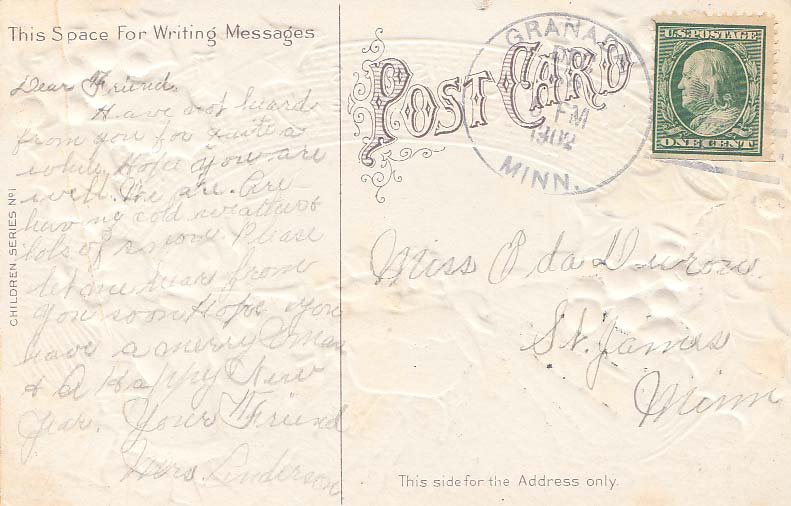 This Space For Writing Messages
Dear Friend.
Have not heard
from you for quite a
while. Hope you are
well. We are. Are
having cold weather &
lots of snow. Please
let me hear from
you soon Hope you
have a merry Xmas
& A Happy New
Year. Your Friend
Mrs. Anderson
CHILDREN SERIES No 1
POST CARD
GRANADA
PM
MINN.
U.S. POSTAGE
ONE CENT
Miss
St. James
Minn
This side for the Address only.